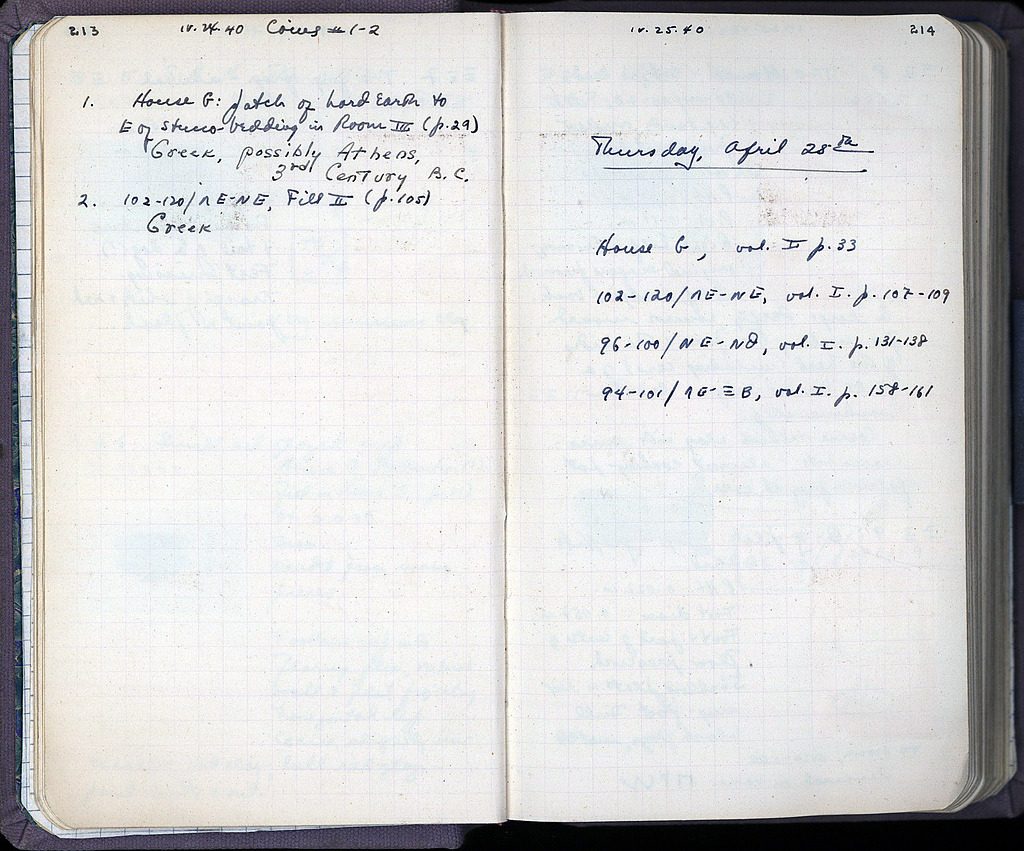 213 IV. 24. 40 Coins #1-2
1. House G: patch of hard earth to
E of stucco-bedding in Room III (p. 29)
Greek, possibly Athens,
3rd Century B.C.
2. 102-120/ΛE-NE, Fill II (p. 105)
Greek
IV. 25. 40 214
Thursday, April 25th
House G, vol. II p. 33
102-120/ΛE-NE, vol. I. p. 107-109
96-100/NE-N∂, vol. I. p. 131-138
94-101/ΛE-ΞB, vol. I. p. 158-161